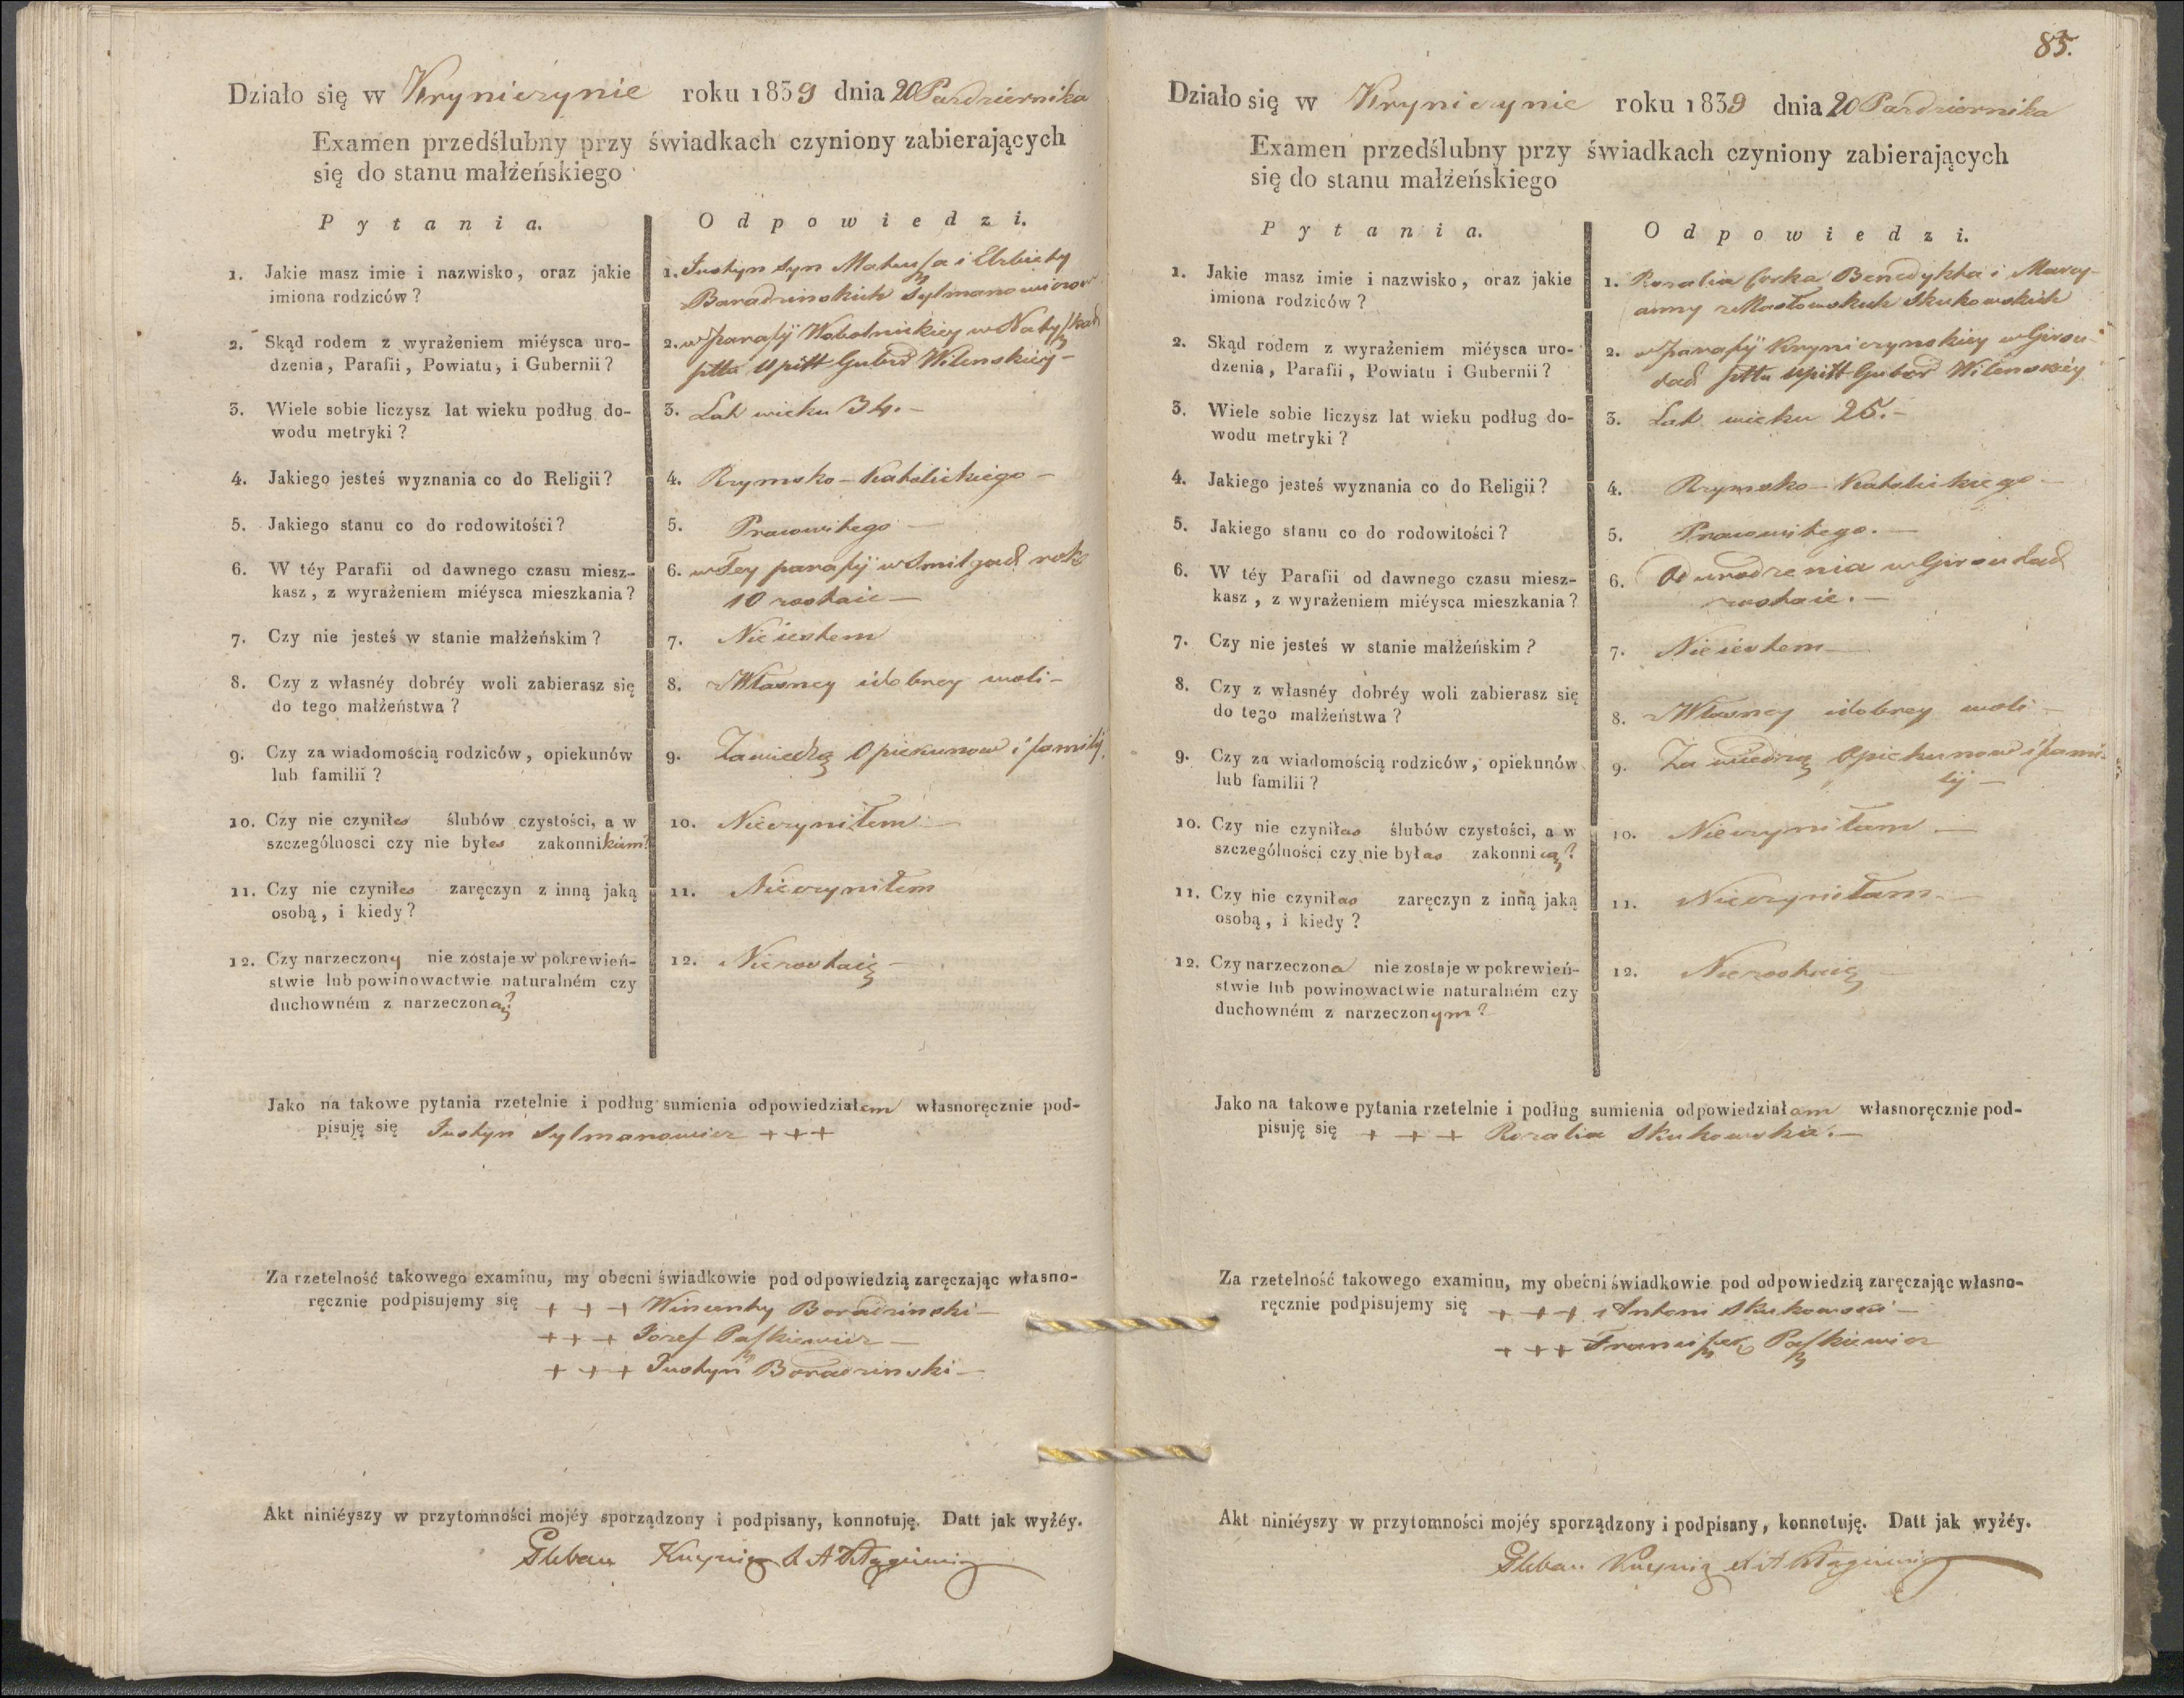 Działo się w Kryniczynie roku 1839 dnia 20 Pazdziernika
Examen przedślubny przy świadkach czyniony zabierających
się do stanu małżeńskiego
Pytania. Odpowiedzi.
1. Jakie masz imie i nazwisko, oraz jakie
imiona rodziców?
1. Justyn syn Mateusza i Elzbiety
z Baradzinskich Sylmanowiczow
2. Skąd rodem z wyrażeniem miéysca uro-
dzenia, Parafii, Powiatu, i Gubernii?
2. w parafij Wobolnickiey w
pttu Upitt Guber Wilenskiey -
3. Wiele sobie liczysz lat wieku podług do-
wodu metryki?
3. Lat wieku 34. -
4. Jakiego jesteś wyznania co do Religii?
4. Rzymsko - Katolickiego -
5. Jakiego stanu co do rodowitości?
5. Pracowitego -
6. W téy Parafii od dawnego czasu miesz-
kasz, z wyrażeniem miéysca mieszkania?
6. w Tey parafij w Smilgach rok
10 zostaie -
7. Czy nie jesteś w stanie małżeńskim?
7. Nie iestem
8. Czy z własnéy dobréy woli zabierasz się
do tego małżeństwa?
8. z Własney i dobrey woli -
9. Czy za wiadomością rodziców, opiekunów
lub familii?
9. Za wiedzą Opiekunow i familij.
10. Czy nie czyniłes ślubów czystości, a w
szczególnosci czy nie byłes zakonnikiem?
10. Nieczyniłem -
11. Czy nie czyniłes zaręczyn z inną jaką
osobą, i kiedy?
11. Nieczyniłem
12. Czy narzeczony nie zostaje w pokrewień-
stwie lub powinowactwie naturalném czy
duchowném z narzeczoną?
12. Niezostaię -
Jako na takowe pytania rzetelnie i podług sumienia odpowiedziałem własnoręcznie pod-
pisuję się Justyn Sylmanowicz +++
Za rzetelność takowego examinu, my obecni świadkowie pod odpowiedzią zaręczając własno-
ręcznie podpisujemy się + + + Wincenty Baradzinski -
+ + + Jozef Paszkiewicz -
+ + + Justyn Baradzinski -
Akt niniéyszy w przytomności mojéy sporządzony i podpisany, konnotuję. Datt jak wyżéy.
Pleban
85.
Działo się w Kryniczynie roku 1839 dnia 20 Pazdziernika
Examen przedślubny przy świadkach czyniony zabierających
się do stanu małżeńskiego
Pytania. Odpowiedzi.
1. Jakie masz imie i nazwisko, oraz jakie
imiona rodziców?
1. Rozalia Corka Benedykta i Mary-
anny z Masłowskich Skukowskich
2. Skąd rodem z wyrażeniem miéysca uro-
dzenia, Parafii, Powiatu i Gubernii?
2. w parafij Kryniczynskiey w Girsu-
dach pttu Upitt Guber Wilenskiéy
3. Wiele sobie liczysz lat wieku podług do-
wodu metryki?
3. Lat wieku 25. -
4. Jakiego jesteś wyznania co do Religii?
4. Rzymsko - Katolickiego -
5. Jakiego stanu co do rodowitości?
5. Pracowitego. -
6. W téy Parafii od dawnego czasu miesz-
kasz, z wyrażeniem miéysca mieszkania?
6. Od urodzenia w Girsudach
zostaie. -
7. Czy nie jesteś w stanie małżeńskim?
7. Nie iestem -
8. Czy z własnéy dobréy woli zabierasz się
do tego małżeństwa?
8. z Własney i dobrey woli -
9. Czy za wiadomością rodziców, opiekunów
lub familii?
9. Za wiedzą Opiekunow i fami-
lij -
10. Czy nie czyniłas ślubów czystości, a w
szczególności czy nie byłas zakonnicą?
10. Nieczyniłam -
11. Czy nie czyniłas zaręczyn z inną jaką
osobą, i kiedy?
11. Nieczyniłam. -
12. Czy narzeczona nie zostaje w pokrewień-
stwie lub powinowactwie naturalném czy
duchowném z narzeczonym?
12. Niezostaię -
Jako na takowe pytania rzetelnie i podług sumienia odpowiedziałam własnoręcznie pod-
pisuję się + + + Rozalia Skukowska. -
Za rzetelność takowego examinu, my obecni świadkowie pod odpowiedzią zaręczając własno-
ręcznie podpisujemy się + + + Antoni Skukowski -
+ + + Franciszek Paszkiewicz
Akt niniéyszy w przytomności mojéy sporządzony i podpisany, konnotuję. Datt jak wyżéy.
Pleban